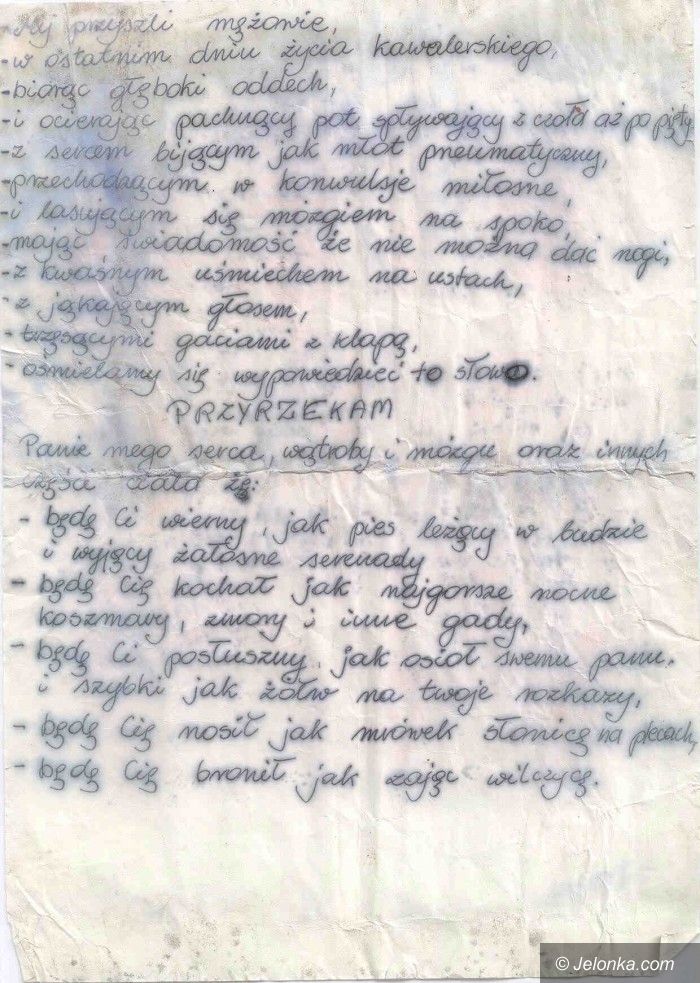 -My przyszli mężowie,
-w ostatnim dniu życia kawalerskiego,
-biorąc głęboki oddech,
-i ocierając pachnący pot spływający z czoła aż po pięty
-z sercem bijącym jak młot pneumatyczny,
-przechodzącym w konwulsje miłosne,
-i lasującym się mózgiem na spoko,
-mając świadomość że nie można dać nogi,
-z kwaśnym uśmiechem na ustach,
-z jąkającym głosem,
-trzęsącymi gaciami z klapą,
-ośmielamy się wypowiedzieć to słowo.
PRZYRZEKAM
Panie mego serca, wątroby i mózgu oraz innych
części ciała że:
- będę Ci wierny, jak pies leżący w budzie
i wyjący żałosne serenady
- będę Cię kochał jak najgorsze nocne
koszmary, zmory i inne gady,
- będę Ci posłuszny jak osioł swemu panu.
i szybki jak żółw na twoje rozkazy,
- będę Cię nosił jak mrówek słonicę na plecach,
- będę Cię bronił jak zając wilczycę.
© Jelonka.com